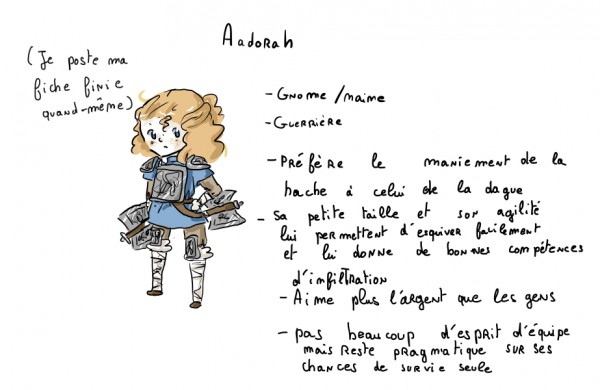 Aadorah
(Je poste ma
fiche finie
quand-même)
- Gnome/naine
- Guerrière
- Préfère le maniement de la
hache à celui de la dague
- Sa petite taille et son agilité
lui permettent d'esquiver facilement
et lui donne de bonnes compétences
d'infiltration
- Aime plus l'argent que les gens
- pas beaucoup d'esprit d'équipe
mais reste pragmatique sur ses
chances de survie seule